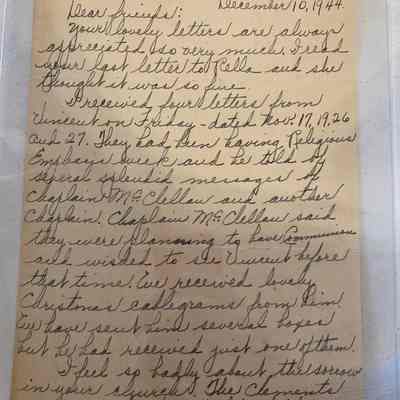 December 10, 1944.
Dear friends:
Your lovely letters are always
appreciated so very much. I read
your last letter to Rella and she
thought it was so fine.
I received four letters from
Vincent on Friday - dated Nov. 17, 19, 26
and 27. They had been having Religious
Emphasys week and he told of
several splendid messages by
Chaplain McClellan and another
Chaplain. Chaplain McClellan said
they were planning to have Communion
and wished to see Vincent before
that time. I've received lovely
Christmas cablegrams from him.
I've have sent him several boxes
but he had received just one of them.
I feel so badly about the sorrow
in your church. The Clements